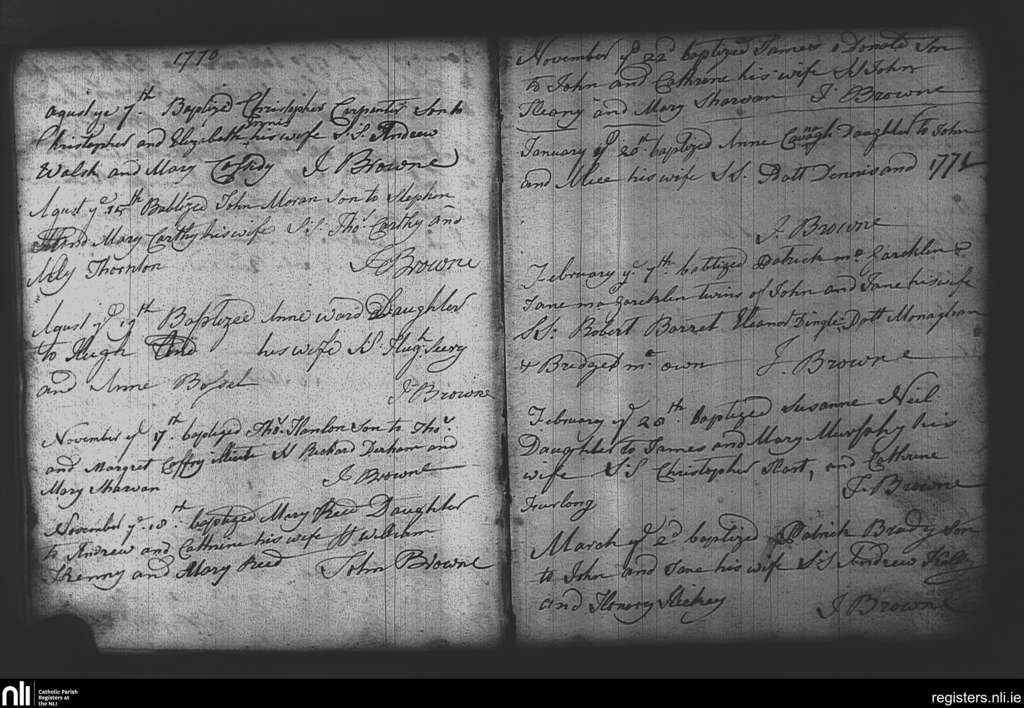 1770
Agust ye 7th Baptized Christopher Carpenter Son to
Christopher and Elizabeth his wife Ss Andrew
Walsh and Mary J Browne
Agust ye 15th Babtized John Moran Son to Stephen
and Mary Carthy his wife Ss. Thos. Carthy and
Mily Thornton J Browne
Agust ye 19th Baptized Anne Ward Daughter
to Hugh and his wife Ss Hugh Seery
and Anne J Browne
November ye 17th baptized Thos. Hanlon Son to Thos.
and Margret Ss Richard Derham and
Mary Sharvan J Browne
November ye 18th baptized Mary Reed Daughter
to Andrew and Cathrine his wife Ss William
Kenny and Mary Reed John Browne
November ye 22d baptized James Donald Son
to John and Cathrine his wife Ss John
Heany and Mary Sharvan J Browne
January ye 20th baptized Anne Daughter to John
and Alice his wife Ss. Patt Dennis and 1771
J. Browne
February ye 7th babtized Patrick mc Garehlen &
Jane mc Garehlen twins of John and Jane his wife
Ss: Robert Barret Eleanor Dingle, Patt Monaghan
& Bridged mc own J. Browne
February ye 28th Baptized Susanne Neil
Daughter to James and Mary Murphy his
wife Ss Christopher Hart, and Cathrine
Furlong J. Browne
March ye 2d baptized Patrick Brady Son
to John and Jane his wife Ss Andrew
and Honory Hickey J Browne
nli
Catholic Parish
Registers at
the NLI
registers.nli.ie